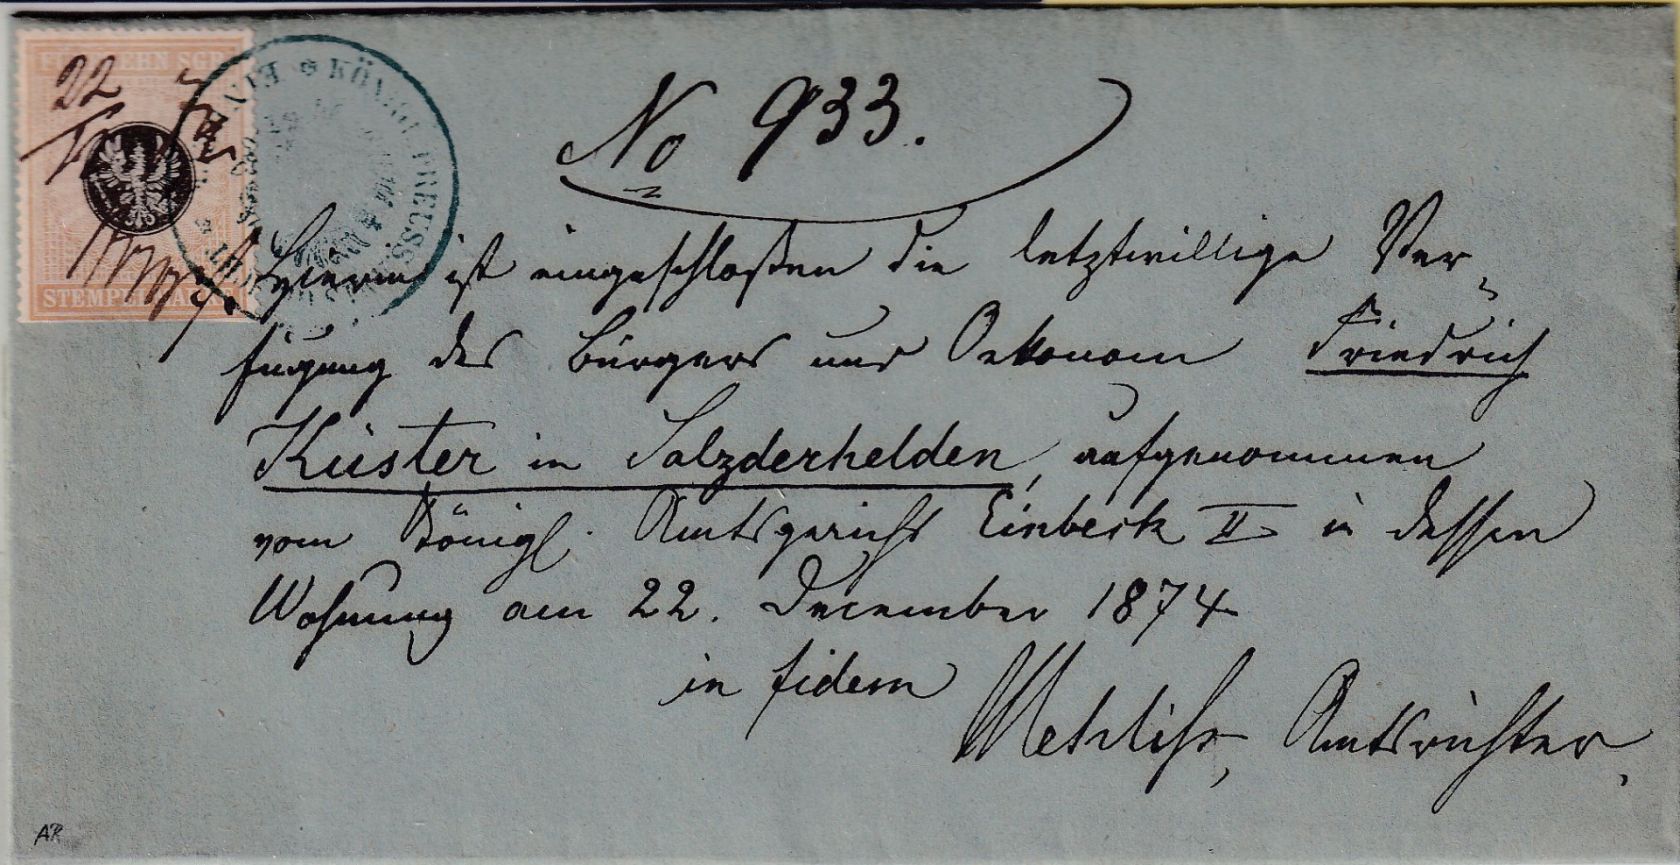 FÜNFZEHN SGR.
22
12 74
STEMPELMARKE
KÖNIGL. PREUSS. AMTSGERICHT EINBECK
No 933.
Hierin ist eingeschloßen die letztwillige Ver-
fügung des Bürgers und Oekonom Friedrich
Küster in Salzderhelden, aufgenommen
vom Königl. Amtsgericht Einbeck II in dessen
Wohnung am 22. December 1874
in fidem
Amtsrichter.
AR